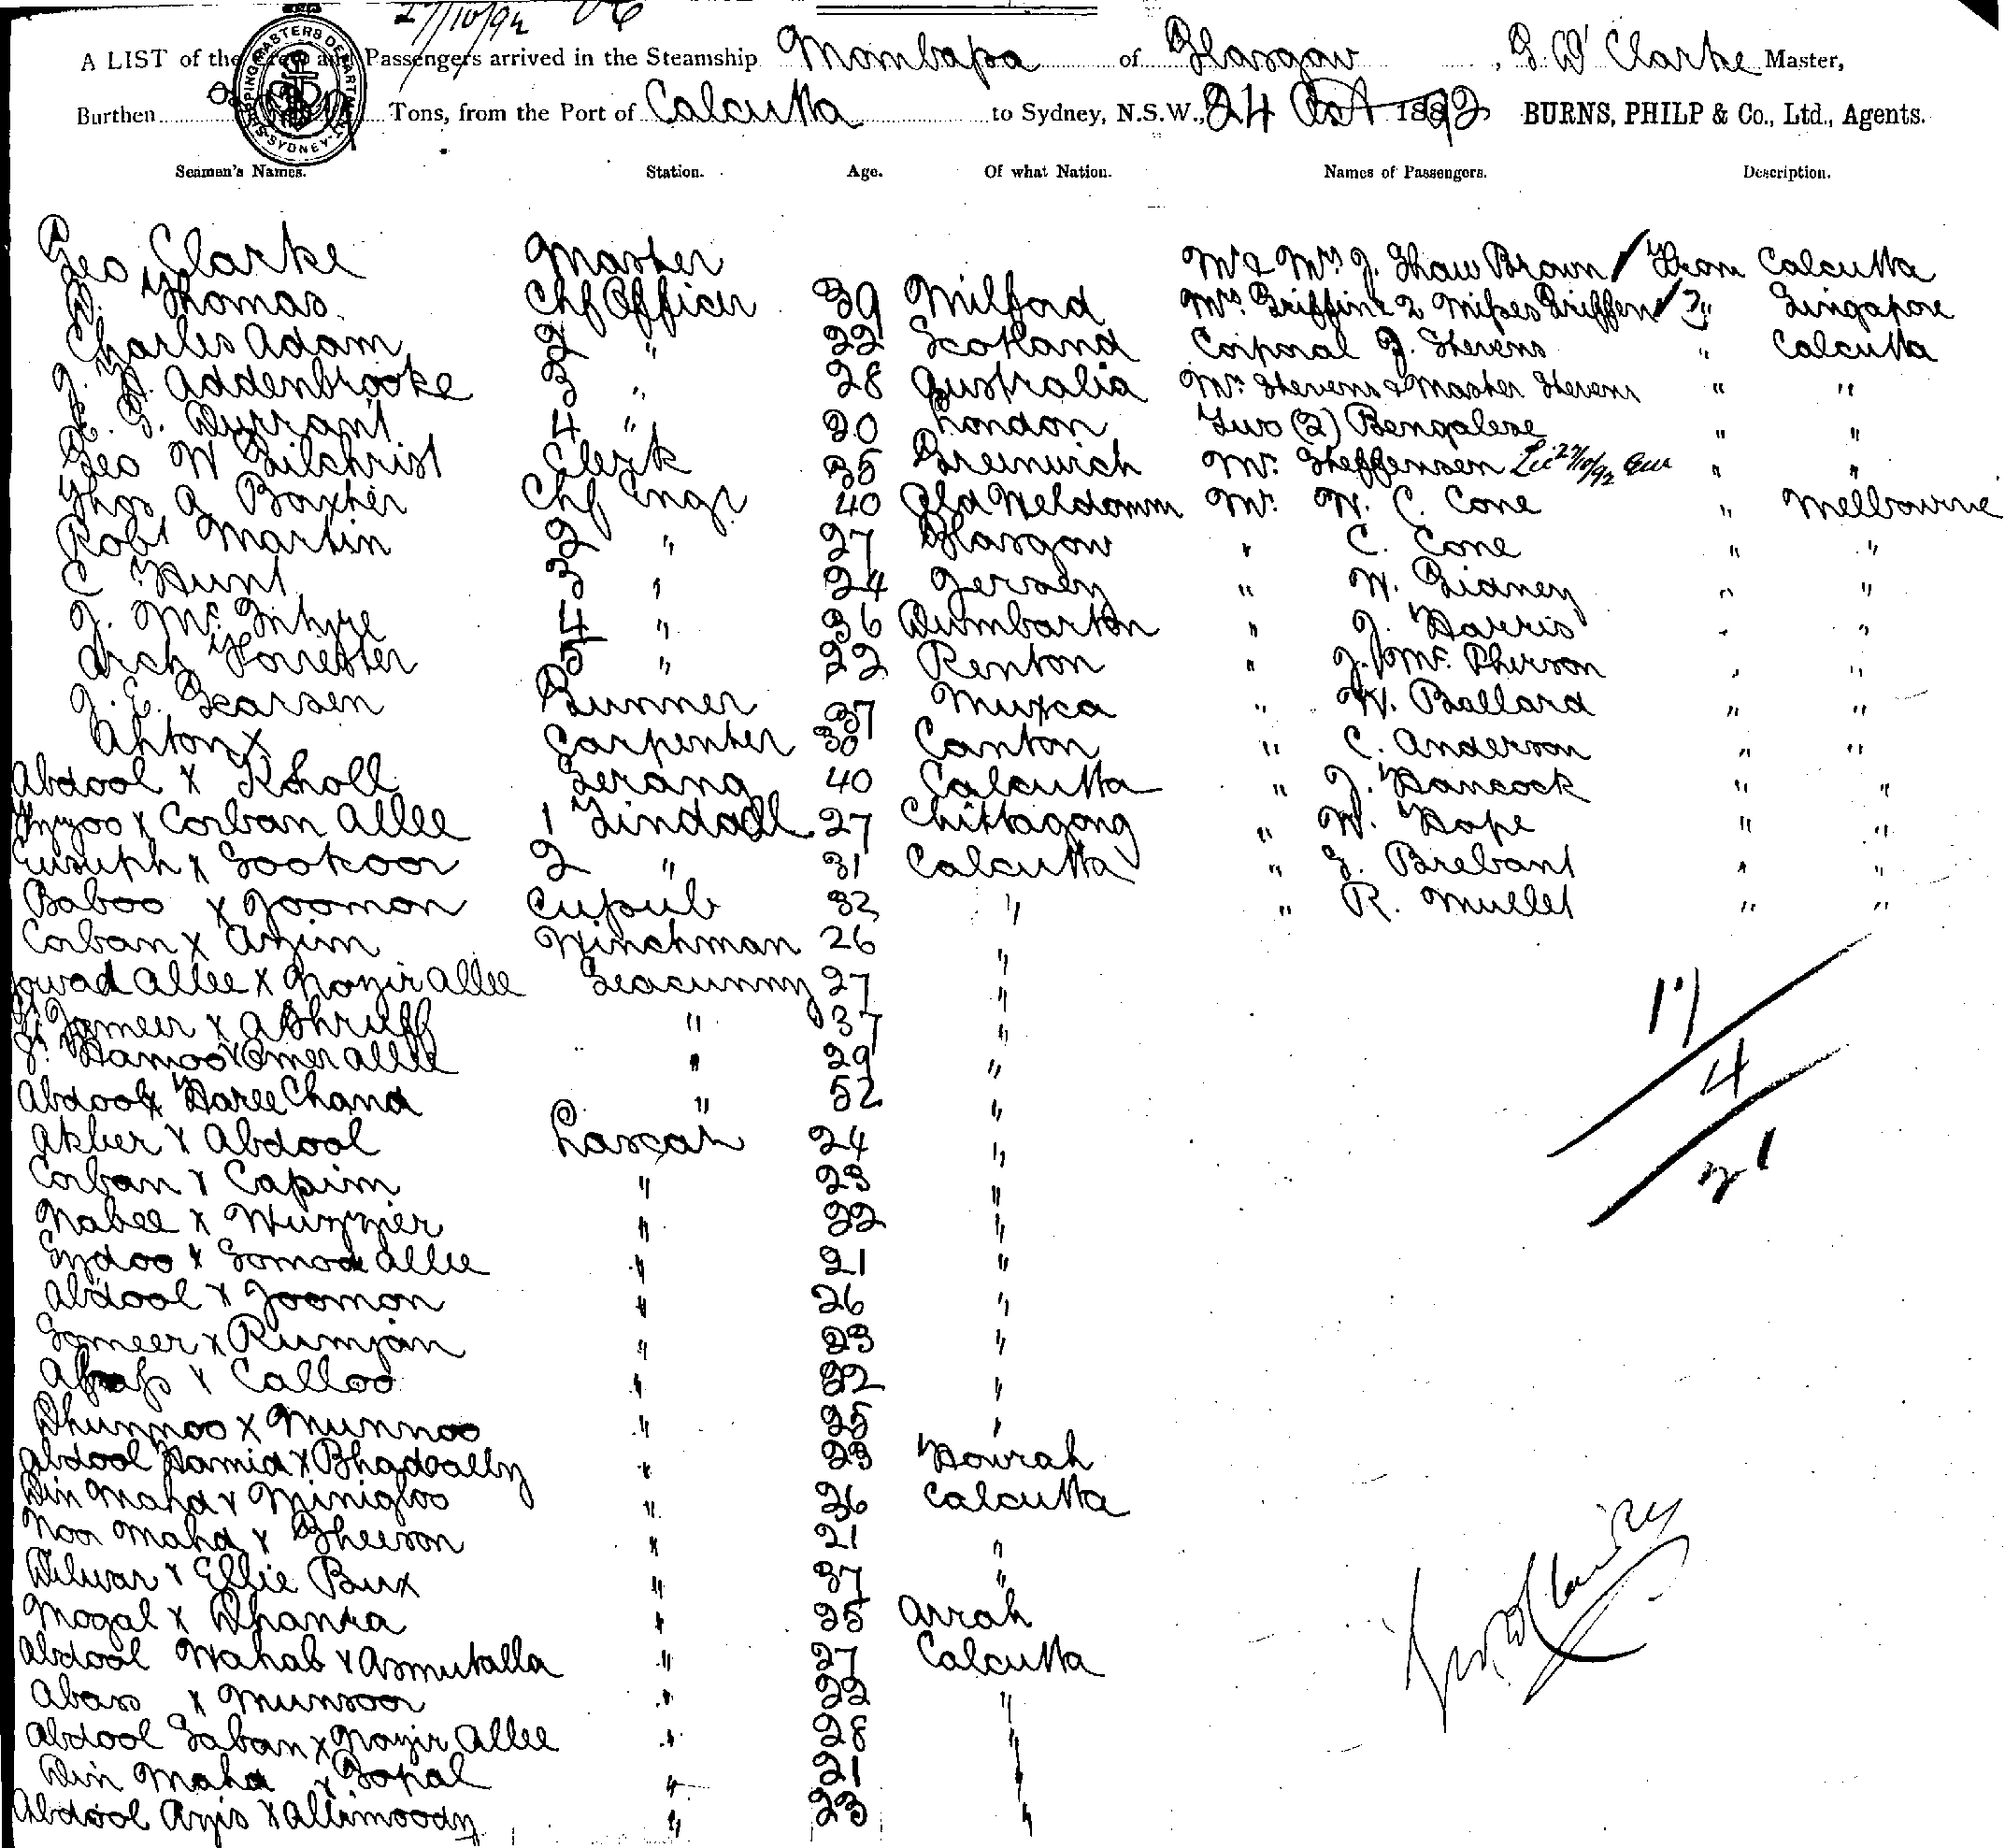 27/10/92
A LIST of the Crew and Passengers arrived in the Steamship Mombassa of Glasgow, G. W. Clarke Master,
Burthen Tons, from the Port of Calcutta to Sydney, N.S.W., 24 Oct 1892 BURNS, PHILP & Co., Ltd., Agents.
SHIPPING MASTERS DEPARTMENT SYDNEY
Seamen's Names. Station. Age. Of what Nation. Names of Passengers. Description.
Geo Clarke Master Mr & Mrs J. Shaw Brown / From Calcutta
Thomas Chf Officer 39 Milford Mrs Griffin & 2 Misses Griffen / " Singapore
Charles Adam 2 " 22 Scotland Corporal J. Stevens " Calcutta
J. H. Addenbrooke 3 " 28 Australia Mrs Stevens & Master Stevens " "
E. G. Durrant 4 " 20 London Two (2) Bengalese " "
Geo W Gilchrist Clerk 35 Greenwich Mr. Steffensen 27/10/92 " "
Thos A Baxter Chf Engr 40 Old Meldrum Mr. W. C. Cone " Melbourne
Robt Martin 2 " 27 Glasgow " C. Cone " "
C Hunt 3 " 24 Jersey " W. Sidney " "
J. McIntyre 4 " 36 Dumbarton " J. Harris " "
Arch Forrester 5 " 22 Renton " J. McPherson " "
J. E. Scarsen Gunner 37 " W. Ballard " "
Ahton x Carpenter 30 Canton " C. Anderson " "
Abdool x Rholl Serang 40 Calcutta " J. Hancock " "
x Corban Allee 1 Tindall 27 Chittagong " W. Hope " "
Eusuph x Sookoor 2 " 31 Calcutta " S. Brebant " "
Baboo x Joomon 32 " " R. Mullet " "
Corban x Azim Winchman 26 "
Jowad Allee x Nazir Allee Seacunny 27 "
Zameer x Ashruff " 37 "
Hamoo x Omer Allee " 29 "
Abdool x Haree Chand " 52 "
Akber x Abdool Lascar 24 "
Corban x Cassim " 23 "
Nabee x Wuzzier " 22 "
Eydoo x Somod Allee " 21 "
Abdool x Joomon " 26 "
Someer x Rumjan " 23 "
x Calloo " 32 "
Dhunnoo x Munnoo " 25 "
Abdool Hamid x Bhadoally " 23 Howrah
Din Mahd x Minigloo " 36 Calcutta
Noor Mahd x Sheeron " 21 "
Dilwar x Ellie Bux " 37 "
Mogal x Dhanka " 25 Arrah
Abdool Wahab x Asmutalla " 27 Calcutta
Abass x Munsoor " 22 "
Abdool Saban x Nazir Allee " 28 "
Din Mahd x Gopal " 21 "
Abdool Azis x Allimoody " 23 "
17
4
21